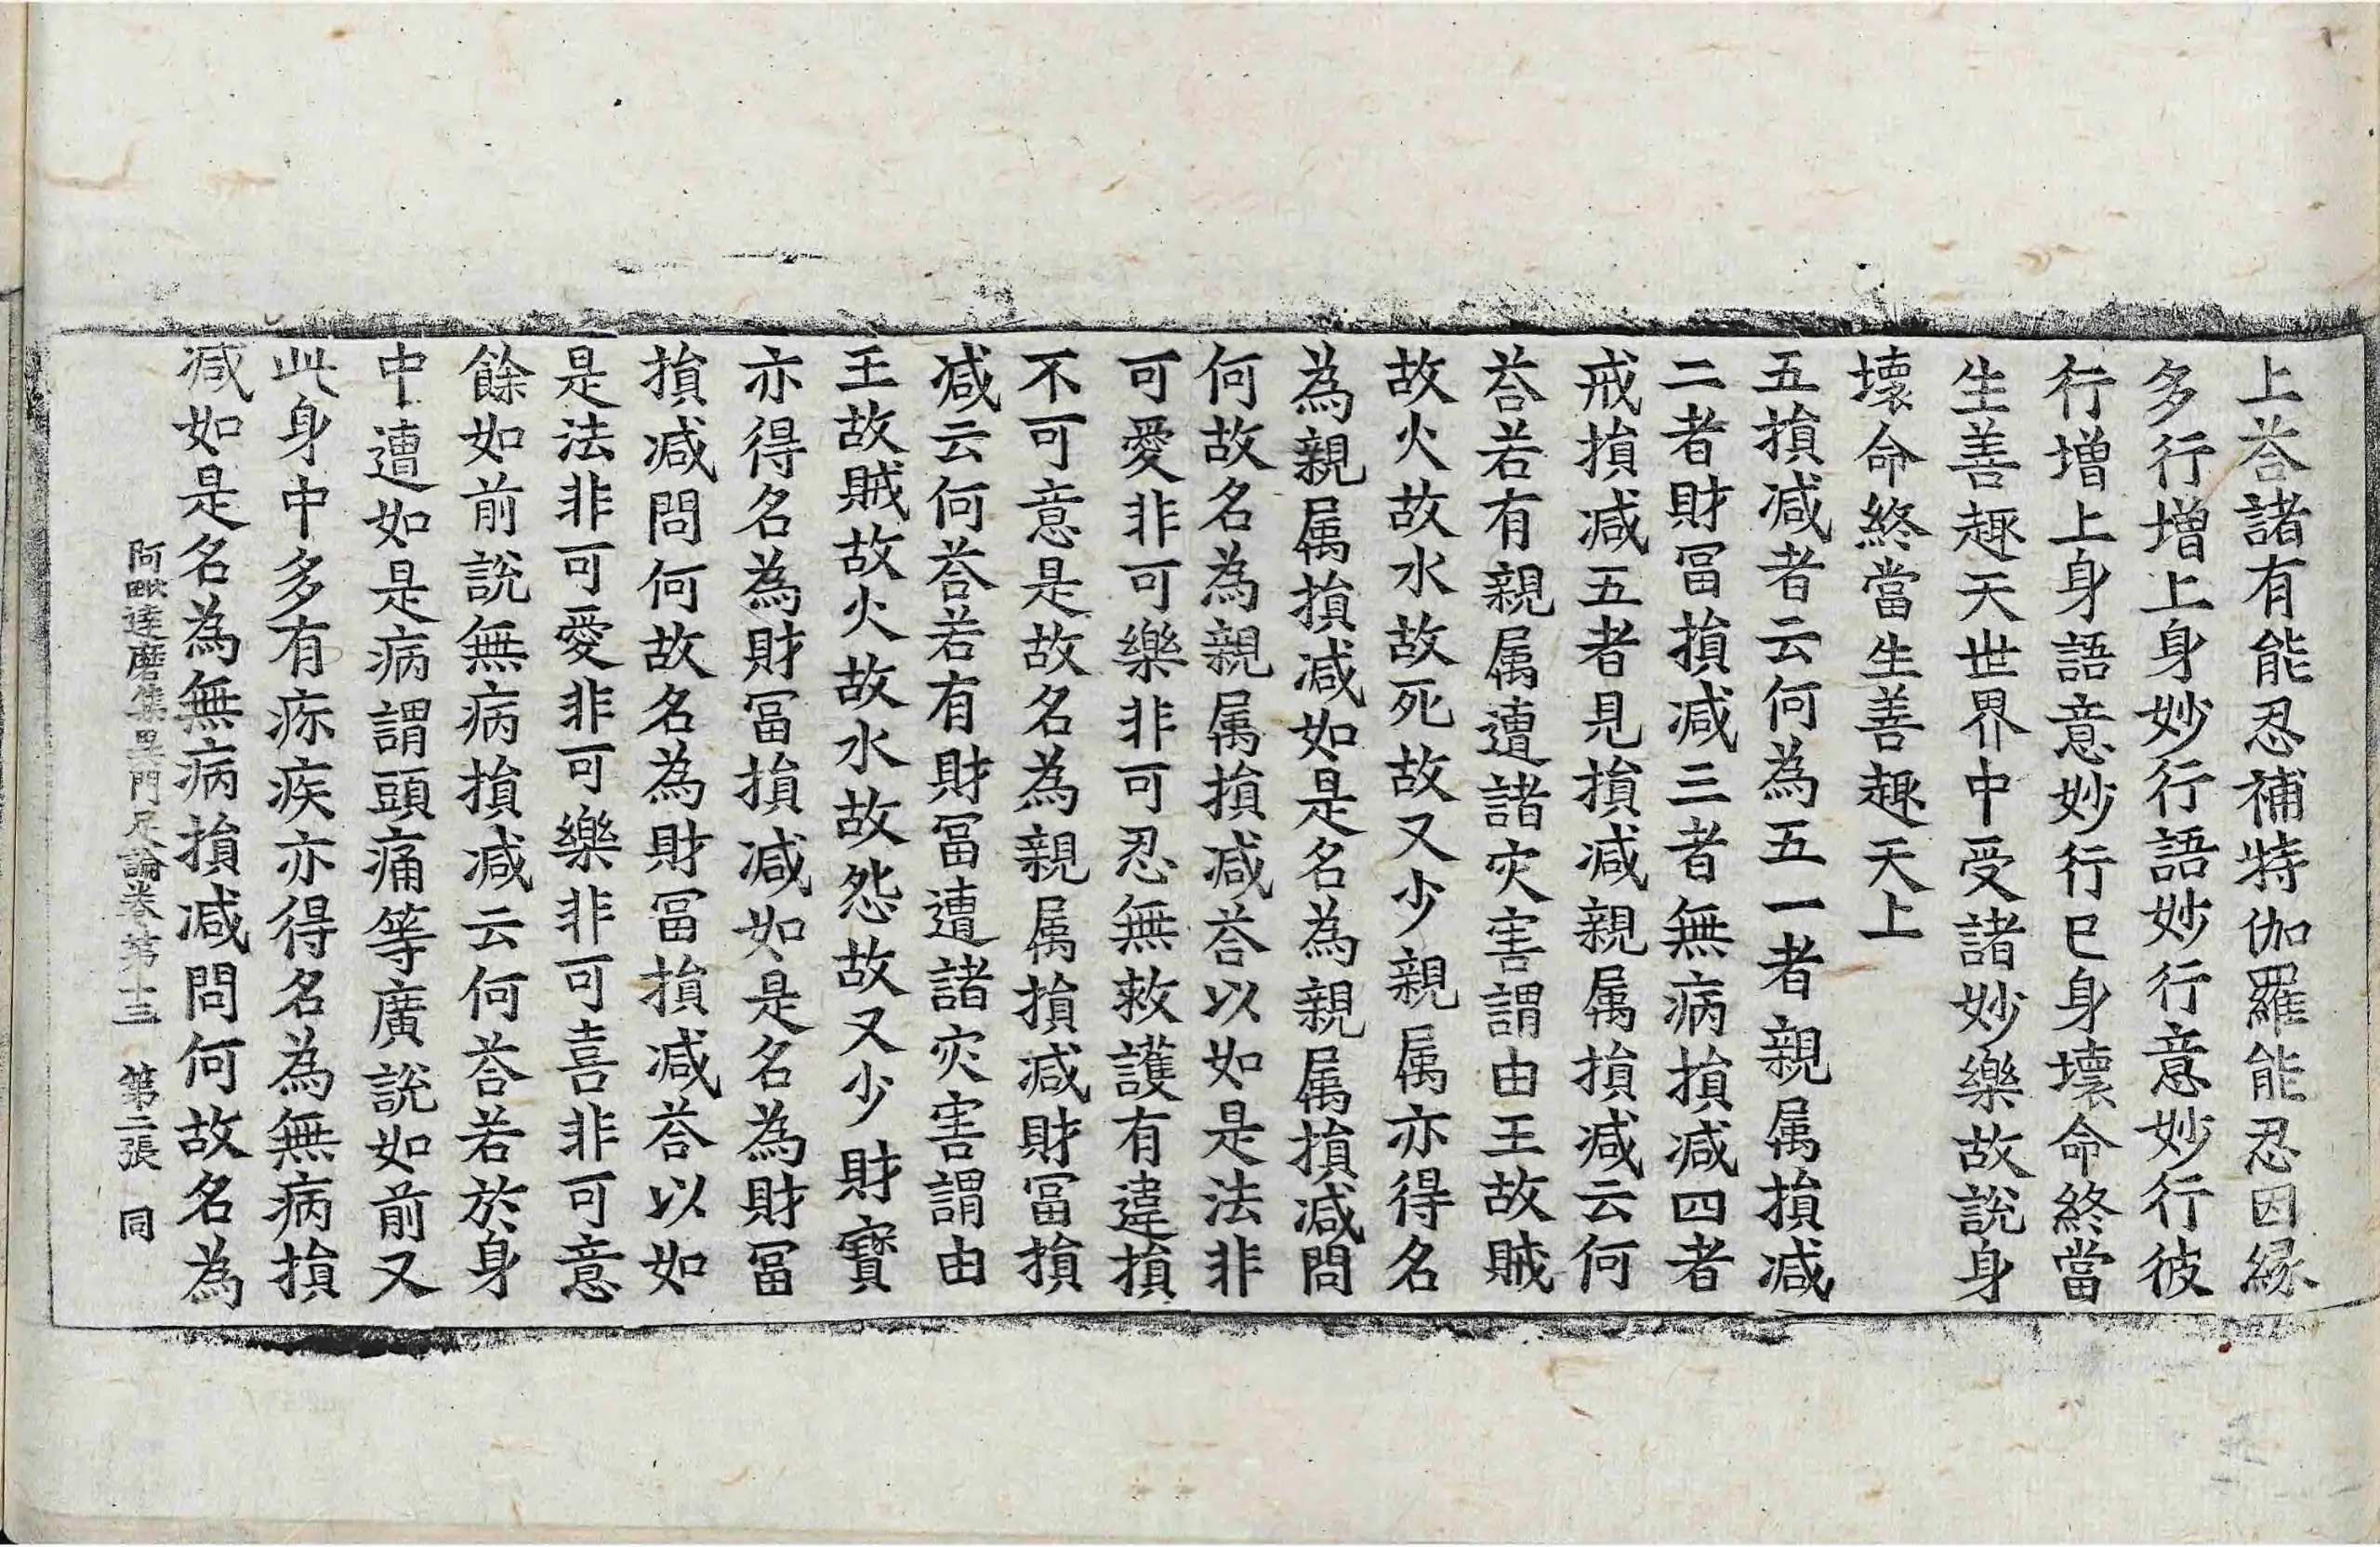 上荅諸有能忍補特伽羅能忍因縁
多行增上身妙行語妙行意妙行彼
行增上身語意妙行已身壞命終當
生善趣天世界中受諸妙樂故說身
壞命終當生善趣天上
五損减者云何為五一者親属損减
二者財冨損减三者無病損减四者
戒損减五者見損减親属損减云何
荅若有親属遭諸灾害謂由王故賊
故火故水故死故又少親属亦得名
為親属損减如是名為親属損减問
何故名為親属損减荅以如是法非
可愛非可樂非可忍無救護有違損
不可意是故名為親属損减財冨損
减云何荅若有財冨遭諸灾害謂由
王故賊故火故水故怨故又少財寶
亦得名為財冨損减如是名為財冨
損减問何故名為財冨損减荅以如
是法非可愛非可樂非可喜非可意
餘如前說無病損减云何荅若於身
中遭如是病謂頭痛等廣說如前又
此身中多有疹疾亦得名為無病損
减如是名為無病損减問何故名為
阿毗達磨集異門足論卷第十三 第二張 同